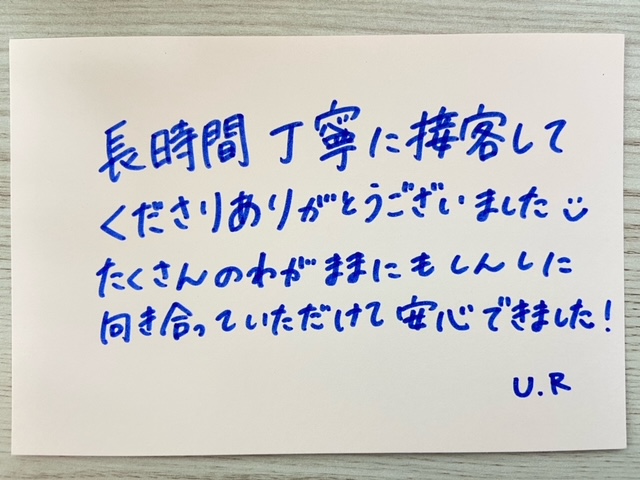 長時間 丁寧に接客して
くださりありがとうございました
たくさんのわがままにもしんしに
向き合っていただけて 安心できました!
U.R